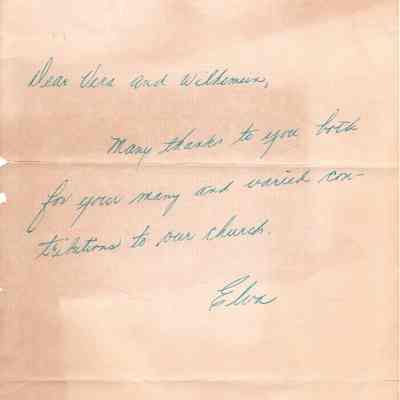 Dear Vera and Wilhemena,
Many thanks to you both
for your many and varied con-
tributions to our church.
Elva